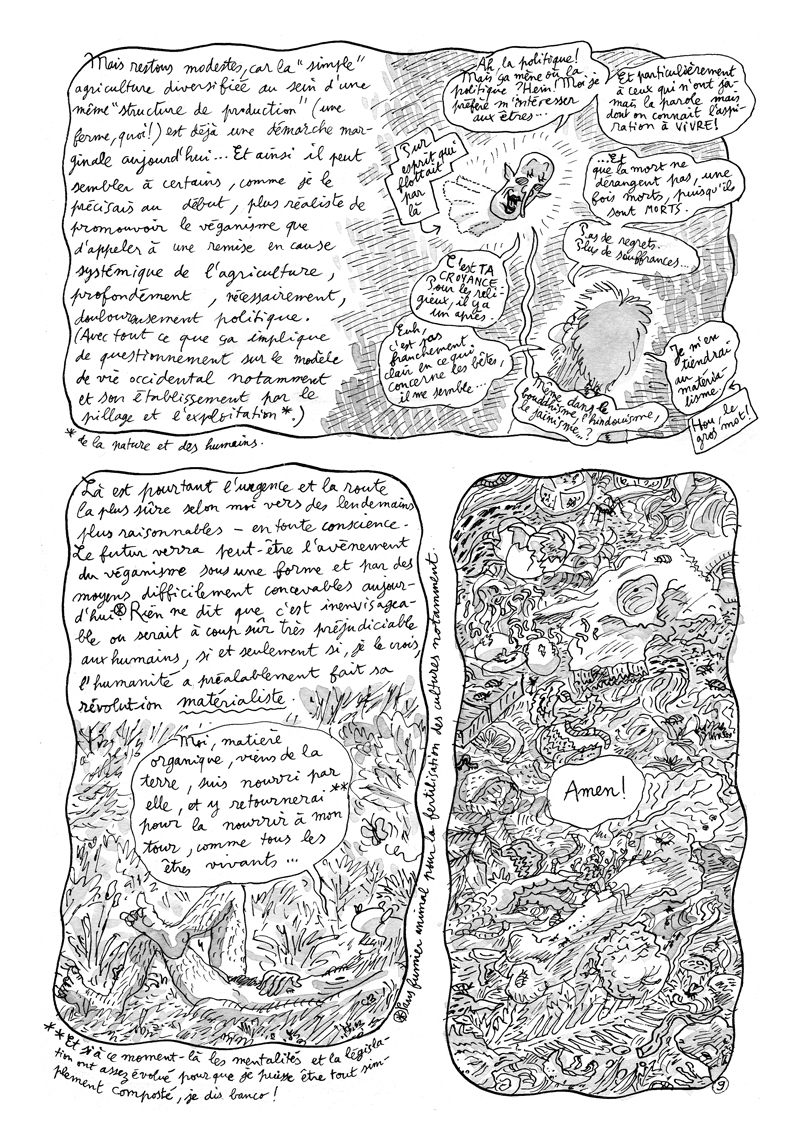 Mais restons modestes, car la "simple"
agriculture diversifiée au sein d'une
même "structure de production" (une
ferme, quoi!) est déjà une démarche mar-
ginale aujourd'hui... Et ainsi il peut
sembler à certains, comme je le
précisais au début, plus réaliste de
promouvoir le véganisme que
d'appeler à une remise en cause
systémique de l'agriculture,
profondément, nécessairement,
douloureusement politique.
(Avec tout ce que ça implique
de questionnement sur le modèle
de vie occidental notamment
et son établissement par le
pillage et l'exploitation*.)
* de la nature et des humains.
Ah, la politique!
Mais ça mène où la
politique? Hein! Moi je
préfère m'intéresser
aux êtres...
Et particulièrement
à ceux qui n'ont ja-
mais la parole mais
dont on connait l'aspi-
ration à VIVRE!
Pur
esprit qui
flottait
par
là
...Et
que la mort ne
dérangent pas, une
fois morts, puisqu'ils
sont MORTS.
Pas de regrets.
Plus de souffrances...
C'est TA
CROYANCE.
Pour les reli-
gieux, il y a
un après.
Euh,
c'est pas
franchement
clair en ce qui
concerne les bêtes,
il me semble...
Même dans le
bouddhisme, l'hindouisme,
le jaïnisme...?
Je m'en
tiendrai
au matéria-
lisme.
Hou, le
gros mot!
Là est pourtant l'urgence et la route
la plus sûre selon moi vers des lendemains
plus raisonnables – en toute conscience.
Le futur verra peut-être l'avènement
du véganisme sous une forme et par des
moyens difficilement concevables aujour-
d'hui.* Rien ne dit que c'est inenvisagea-
ble ou serait à coup sûr très préjudiciable
aux humains, si et seulement si, je le crois,
l'humanité a préalablement fait sa
révolution matérialiste.
Moi, matière
organique, viens de la
terre, suis nourri par
elle, et y retournerai**
pour la nourrir à mon
tour, comme tous les
êtres vivants...
* Sans fumier animal pour la fertilisation des cultures notamment.
** Et si à ce moment-là les mentalités et la législa-
tion ont assez évolué pour que je puisse être tout sim-
plement composté, je dis banco!
Amen!
9